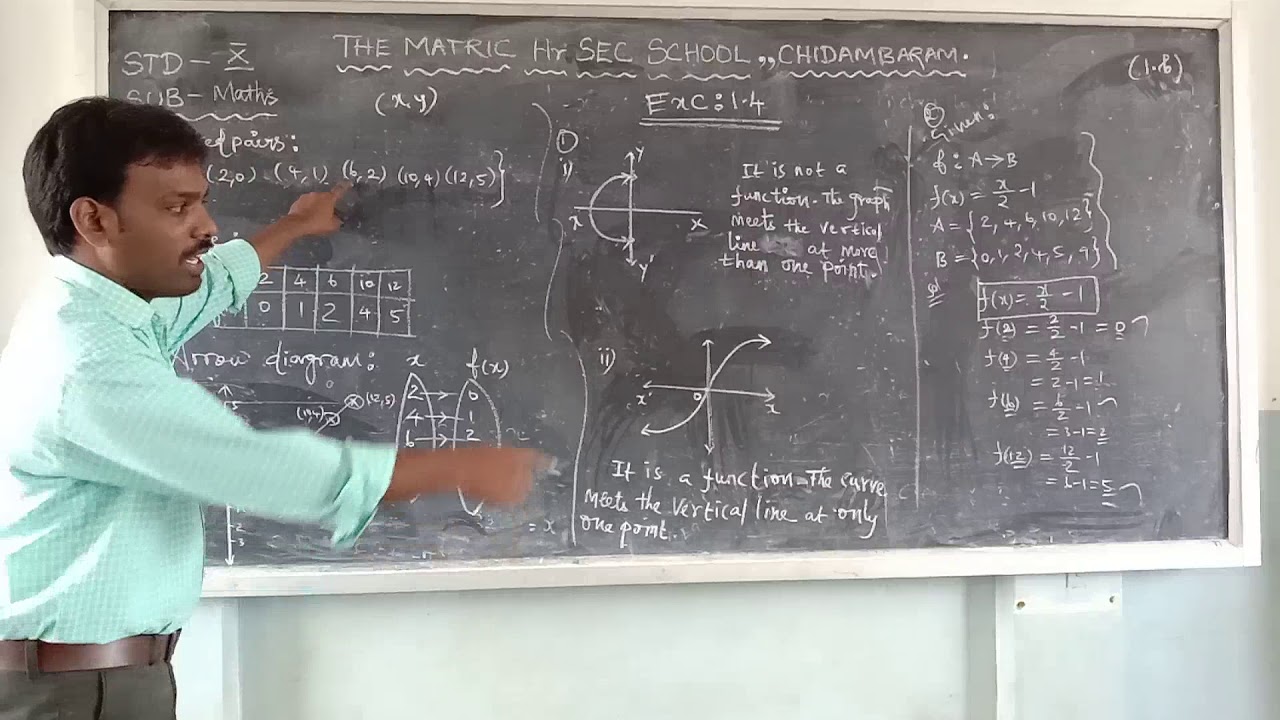 THE MATRIC Hr SEC SCHOOL,, CHIDAMBARAM.
STD - X
SUB - Maths
(x, y)
(1.6)
pairs:
(2,0) (4,1) (6,2) (10,4) (12,5)}
2 4 6 10 12
0 1 2 4 5
Arrow diagram:
x f(x)
2 0
4 1
6 2
(12,5)
(10,4)
5
2
3
= x
Exc: 1.4
①
i)
Y
X X
Y'
It is not a
function. The graph
meets the vertical
line at more
than one point.
ii)
x' 0 x
It is a function. The curve
meets the vertical line at only
one point.
②
Given:
f : A→B
f(x) = x/2 - 1
A = {2, 4, 6, 10, 12}
B = {0, 1, 2, 4, 5, 9}
f(x) = x/2 - 1
f(2) = 2/2 - 1 = 0
f(4) = 4/2 - 1
= 2-1 = 1
f(6) = 6/2 - 1
= 3-1 = 2
f(12) = 12/2 - 1
= 6-1 = 5